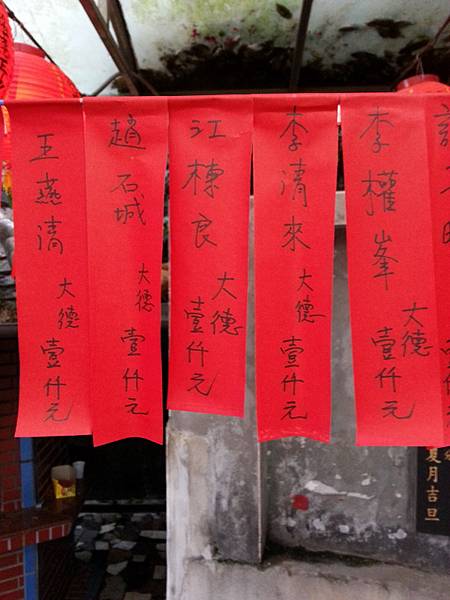 李權峯 大德 壹仟元
李清來 大德 壹仟元
江棟良 大德 壹仟元
趙石城 大德 壹仟元
王燕清 大德 壹仟元
夏月吉旦